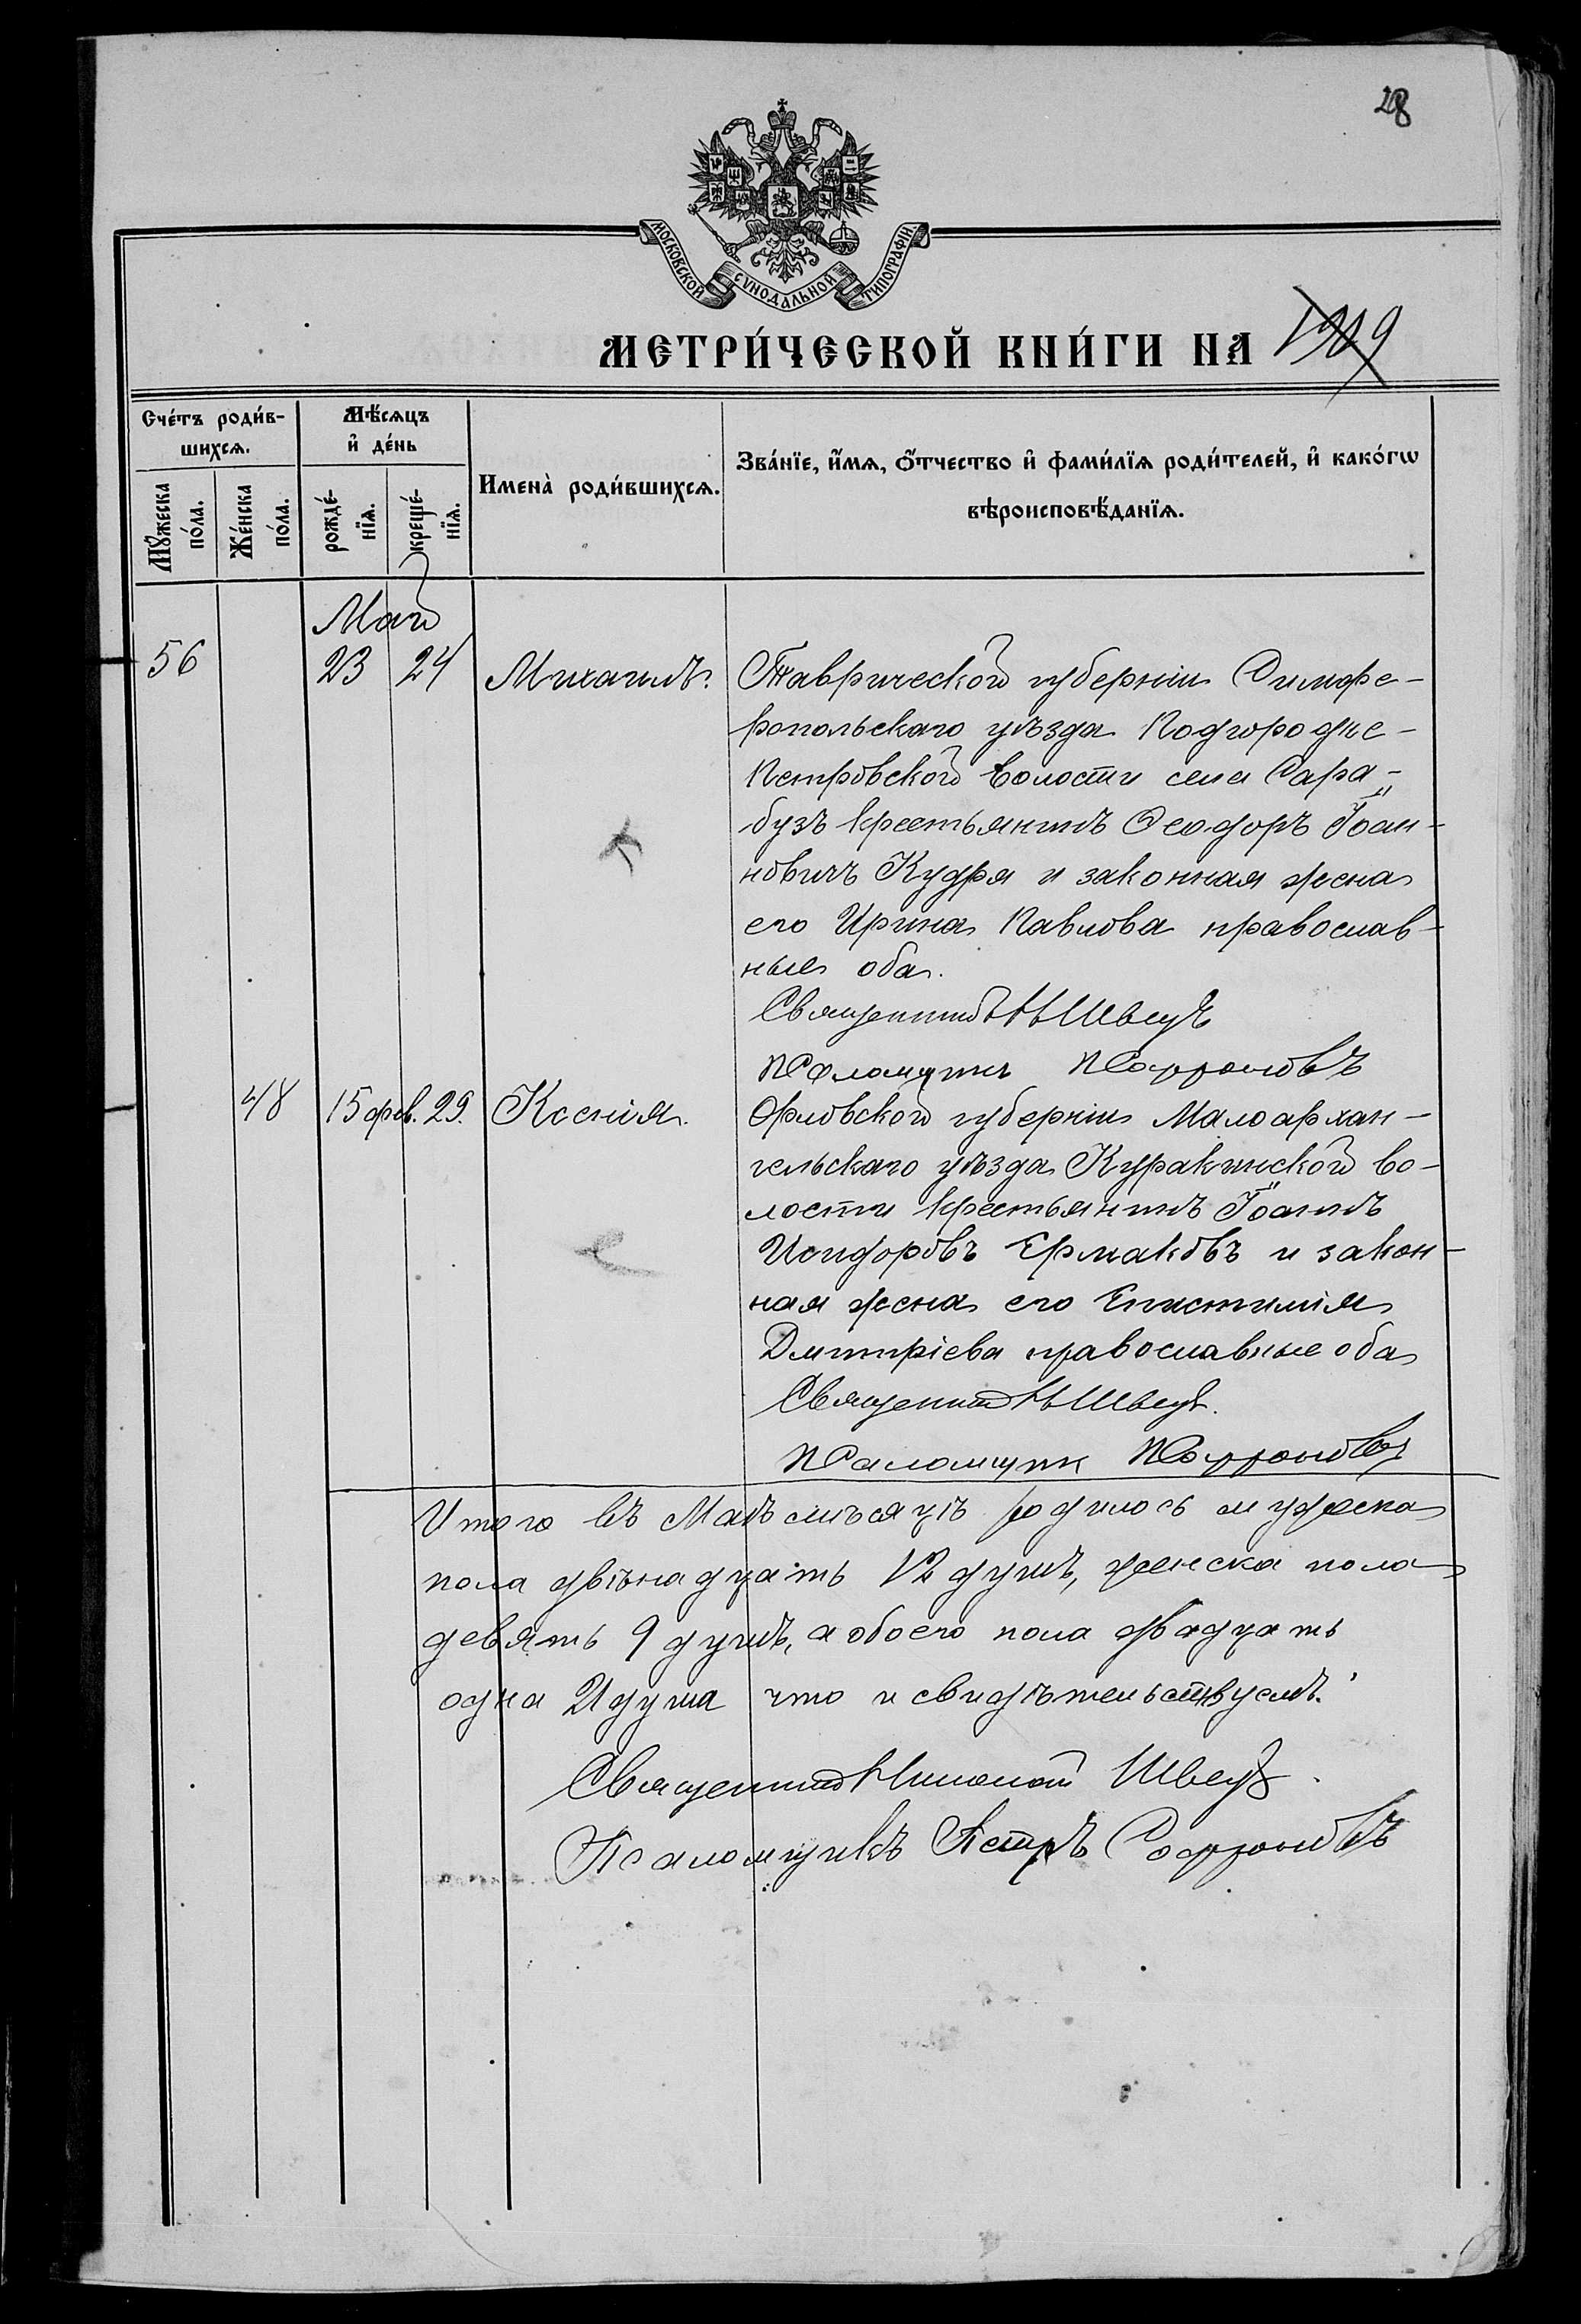 28
МОСКОВСКОЙ СѴНОДАЛЬНОЙ ТИПОГРАФІИ
МЕТРИ́ЧЕСКОЙ КНИ́ГИ НА 1909
Сче́тъ роди́в-
шихсѧ.
Мѣ́сяцъ
и҆ де́нь
Имена̀ роди́вшихсѧ.
Зва́нїе, и҆́мѧ, ѻ҆́тчество и҆ фами́лїѧ роди́телей, и҆ како́гѡ
вѣроисповѣ́данїѧ.
Мꙋ́жеска
по́ла.
Же́нска
по́ла.
рожде́-
нїѧ.
креще́-
нїѧ.
Май
56 23 24 Михаилъ. Таврической губерніи Симфе-
ропольскаго уѣзда Подгородне-
Петровской волости села Сара-
бузъ крестьянинъ Ѳеодоръ Іоан-
новичъ Кудря и законная жена
его Ирина Павлова православ-
ные оба.
Священникъ Н Швецъ
Псаломщикъ П Софроновъ
48 15 фев. 29. Ксенія. Орловской губерніи Малоархан-
гельскаго уѣзда Куракинской во-
лости крестьянинъ Іоаннъ
Исидоровъ Ермаковъ и закон-
ная жена его Епистимія
Дмитріева православные оба
Священникъ Н Швецъ.
Псаломщик П Софроновъ
Итого въ Маѣ мѣсяцѣ родилось мужеска
пола двѣнадцать 12 душъ, женска пола
девять 9 душъ, а обоего пола двадцать
одна 21 душа что и свидѣтельствуемъ.
Священникъ Николай Швецъ.
Псаломщикъ Петръ Софроновъ